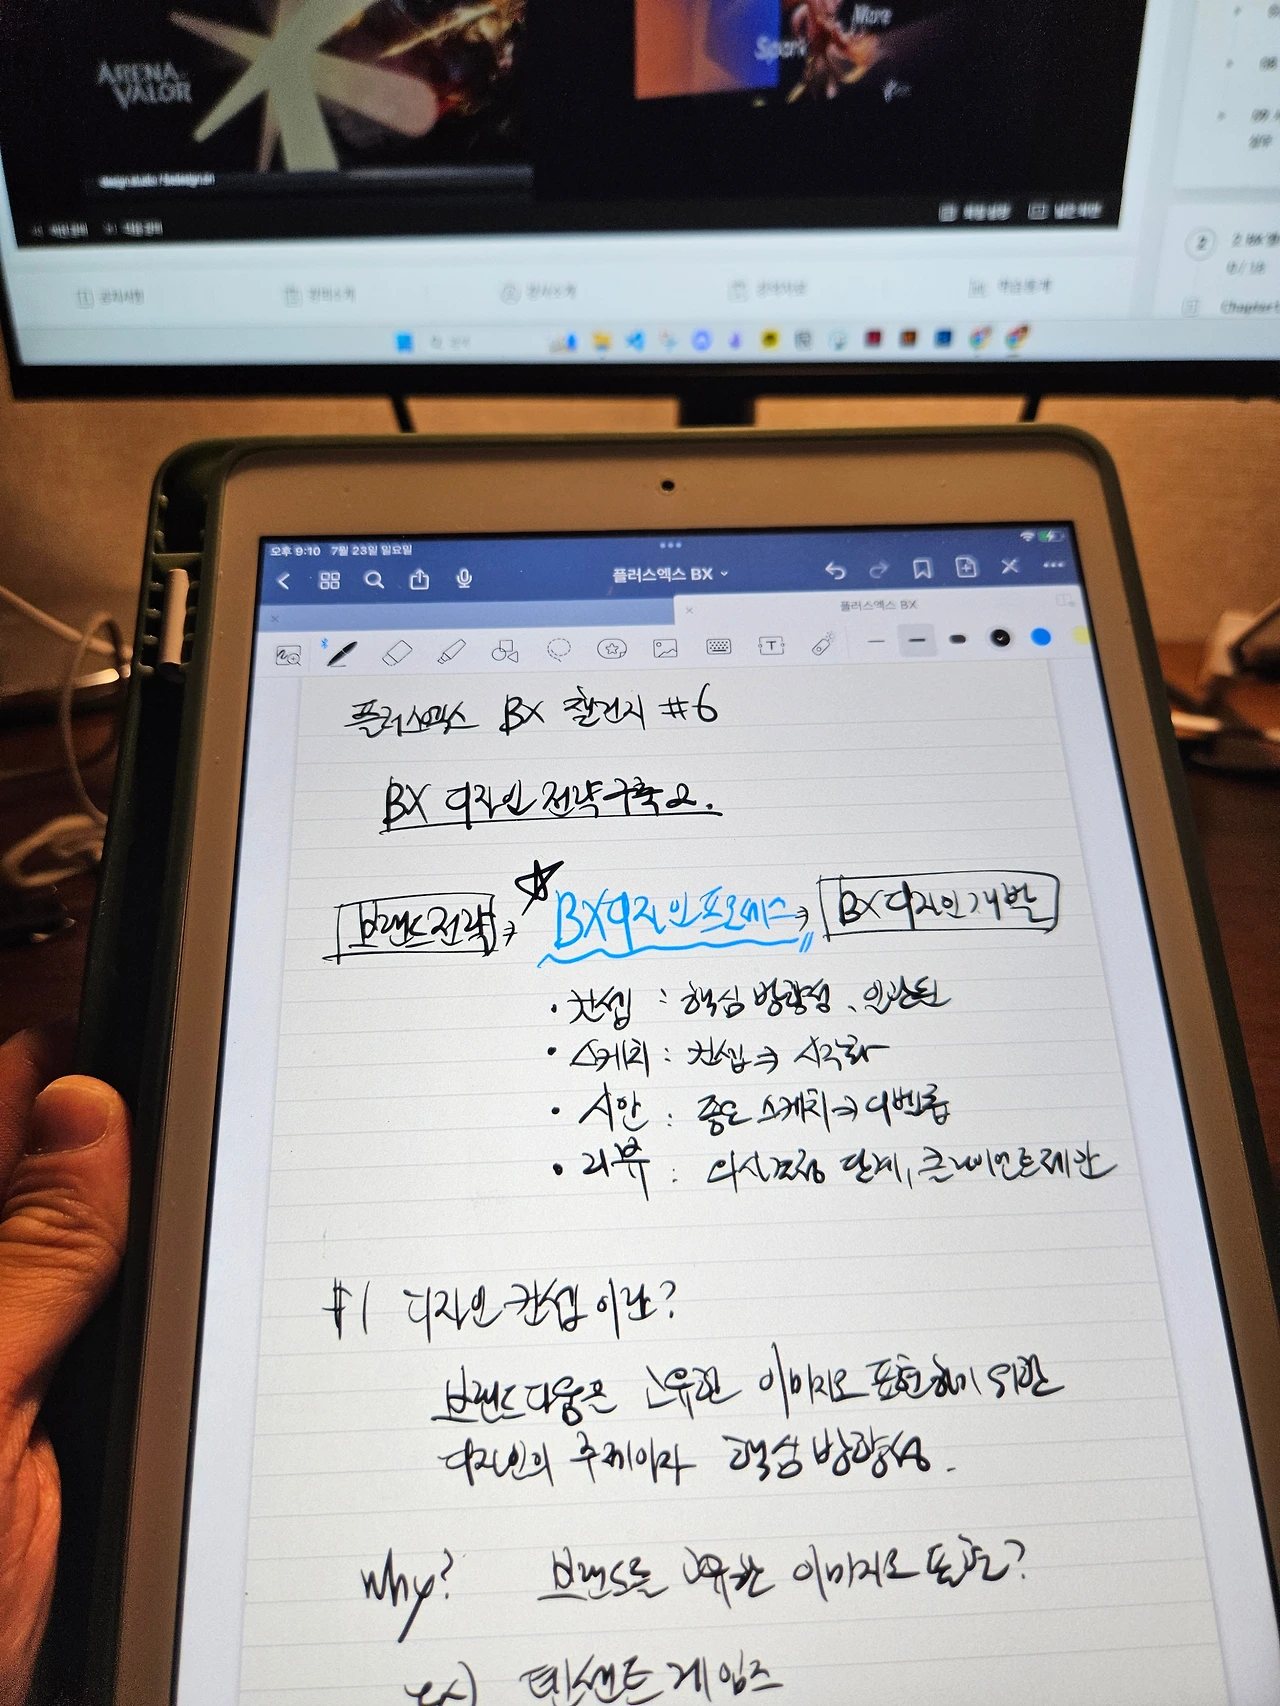 ARENA
VALOR
More
Spark
2
Chapter
오후 9:10 7월 23일 일요일
플러스엑스 BX
플러스엑스 BX
플러스엑스 BX 챌린지 #6
BX 디자인 전략 구축 2.
브랜드 전략 → BX 디자인 프로세스 → BX 디자인 개발
• 컨셉 : 핵심 방향성, 일관된
• 스케치 : 컨셉 → 시각화
• 시안 : 좋은 스케치 → 디벨롭
• 리뷰 : 의사결정 단계, 클라이언트 제안
#1 디자인 컨셉이란?
브랜드다움을 고유한 이미지로 표현하기 위한
디자인의 주제이자 핵심 방향성.
why? 브랜드를 고유한 이미지로 표현?
ex) 텐센트 게임즈